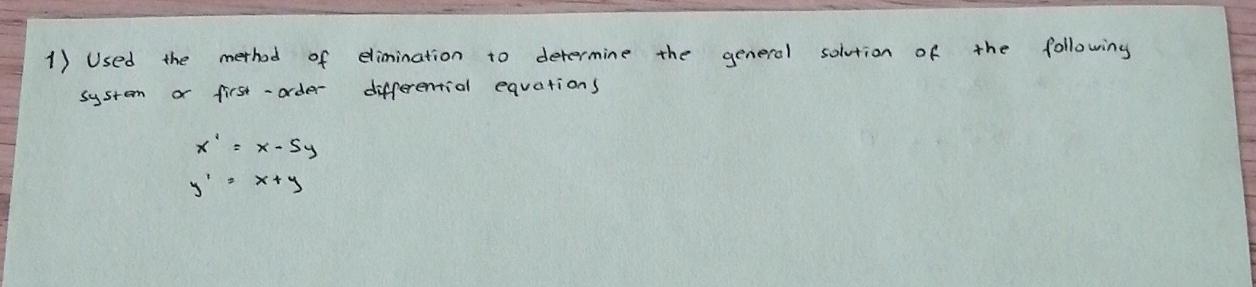 1) Used the method of elimination to determine the general solution of the following
system or first-order differential equations
x' = x - 5y
y' = x + y